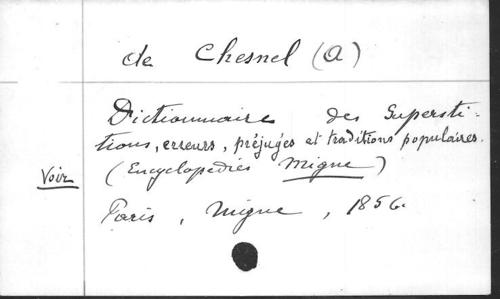 de Chesnel (A)
Dictionnaire des Supersti-
tions, erreurs, préjugés et traditions populaires.
(Encyclopédies Migne)
Voir
Paris, Migne, 1856.